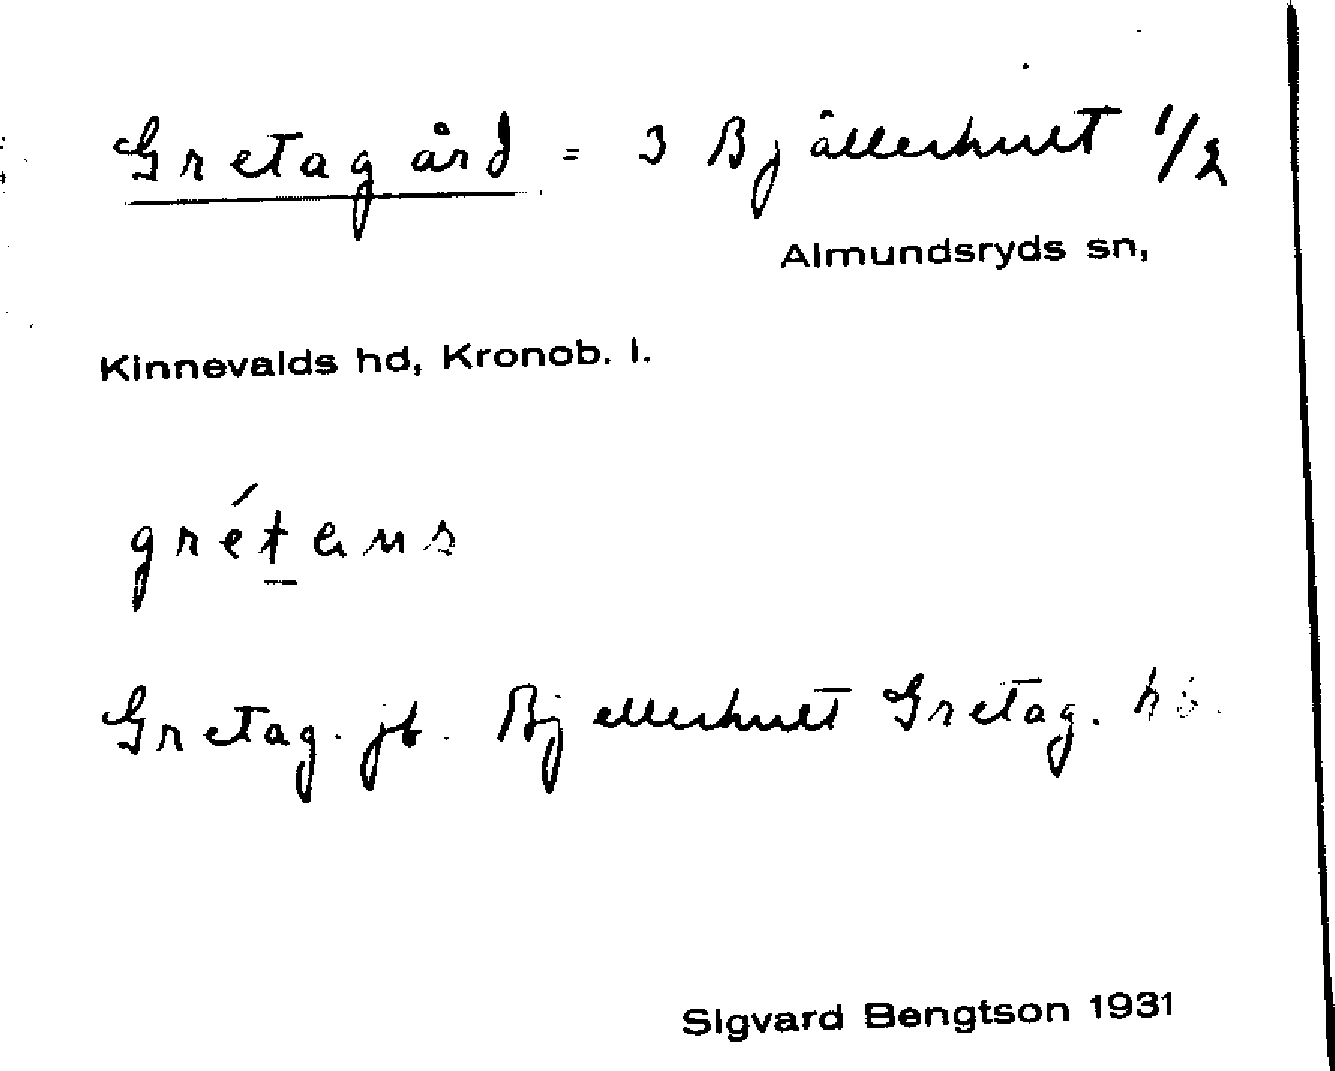 Gretagård = 3 Bjällerhult 1/2
Almundsryds sn,
Kinnevalds hd, Kronob. l.
grétans
Gretag. jb. Bjellerhult Gretag.
Sigvard Bengtson 1931